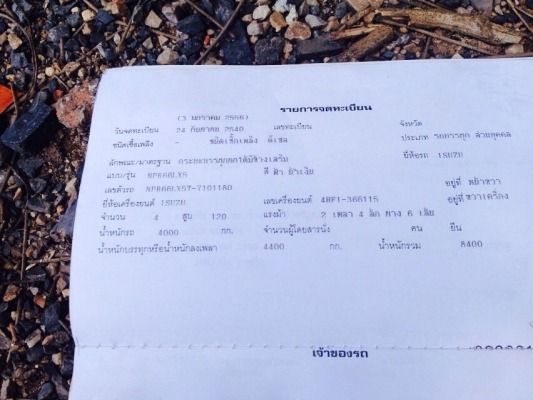 รายการจดทะเบียน
(3 มกราคม 2556)
วันจดทะเบียน 24 กันยายน 2540 เลขทะเบียน จังหวัด
ชนิดเชื้อเพลิง - ดีเซล ประเภท รถบรรทุก ส่วนบุคคล
ลักษณะ/มาตรฐาน กระบะบรรทุก ยี่ห้อรถ ISUZU
แบบ/รุ่น NPR66LXS สี ฟ้า
เลขตัวรถ NPR66LXST-7101180 อยู่ที่ หน้าขวา
ยี่ห้อเครื่องยนต์ ISUZU เลขเครื่องยนต์ 4HF1-366115 อยู่ที่ ขวาเครื่อง
จำนวน 4 สูบ 120 แรงม้า 2 เพลา 4 ล้อ ยาง 6 เส้น
น้ำหนักรถ 4000 กก. จำนวนผู้โดยสารนั่ง คน ยืน
น้ำหนักบรรทุกหรือน้ำหนักลงเพลา 4400 กก. น้ำหนักรวม 8400
เจ้าของรถ